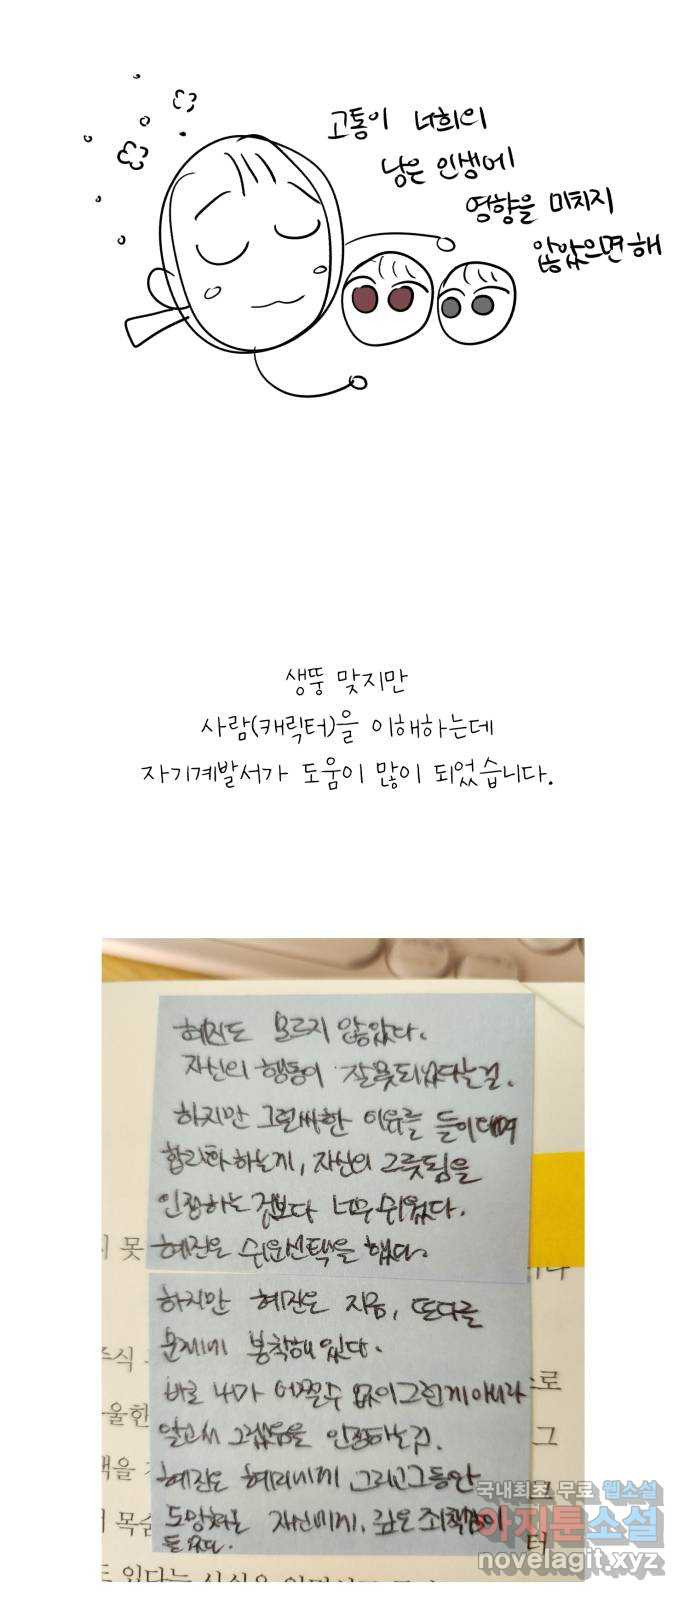 고통이 너희의
남은 인생에
영향을 미치지
않았으면 해
생뚱 맞지만
사람(캐릭터)을 이해하는데
자기계발서가 도움이 많이 되었습니다.
혜진도 모르지 않았다.
자신의 행동이 잘못되었다는걸.
하지만 그럴싸한 이유를 들이대며
합리화하는게, 자신의 그릇됨을
인정하는 것보다 너무 쉬웠다.
혜진은 쉬운선택을 했다.
하지만 혜진은 지금, 또다른
문제에 봉착해있다.
바로 내가 어쩔수 없이그런게아니라
알고서 그랬음을 인정하는것.
혜진은 혜리에게 그리고그동안
도망쳐온 자신에게, 깊은 죄책감이
들었다.
국내최초 무료 웹소설
아지툰소설
novelagit.xyz